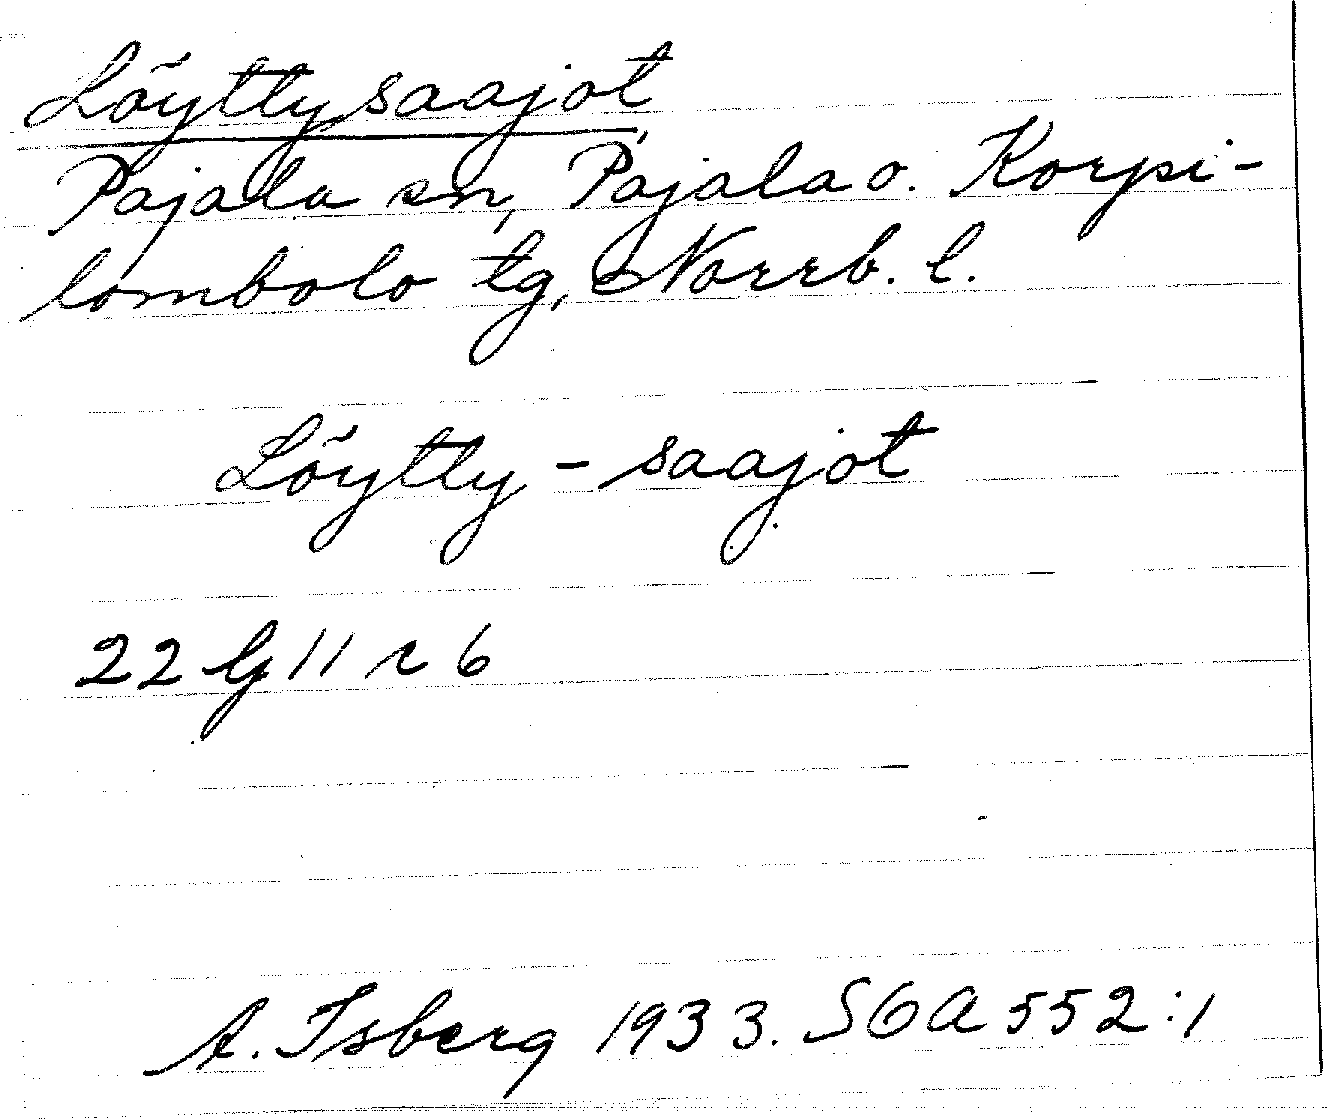 Löyttysaajot
Pajala sn, Pajala o. Korpi-
lombolo tg, Norrb. l.
Löytty - saajot
22 G 11 r 6
A. Isberg 1933. SGA 552:1